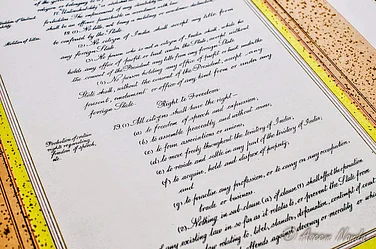 be conferred by the State.
(2) No citizen of India shall accept any title from
any foreign State.
(3) No person who is not a citizen of India shall, while he
holds any office of profit or trust under the State, accept without
the consent of the President any title from any foreign State.
(4) No person holding any office of profit or trust under the
State shall, without the consent of the President, accept any
present, emolument, or office of any kind from or under any
foreign State.
Right to Freedom
Protection of certain
rights regarding
freedom of speech,
etc.
19. (1) All citizens shall have the right —
(a) to freedom of speech and expression;
(b) to assemble peaceably and without arms;
(c) to form associations or unions;
(d) to move freely throughout the territory of India;
(e) to reside and settle in any part of the territory of India;
(f) to acquire, hold and dispose of property;
and
(g) to practise any profession, or to carry on any occupation,
trade or business.
(2) Nothing in sub-clause (a) of clause (1) shall affect the operation
of any existing law in so far as it relates to, or prevent the State from
law relating to, libel, slander, defamation, contempt of
offends against decency or morality or which